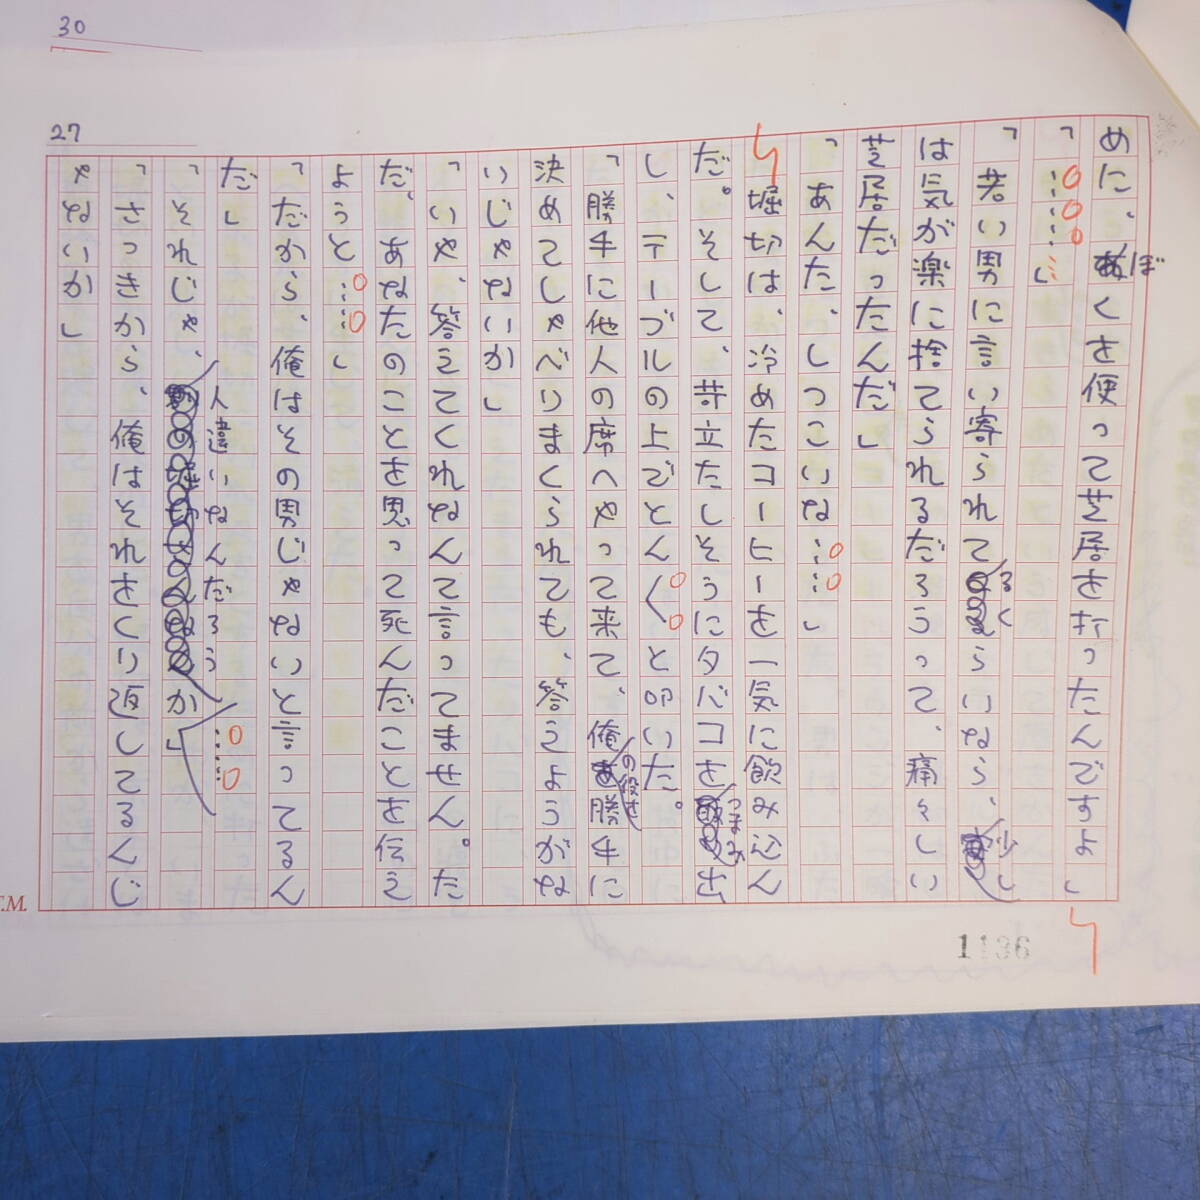 30
27
めに、ぼくを使って芝居を打ったんですよ」
「………」
「若い男に言い寄られてるくらいなら、少し
は気が楽に捨てられるだろうって、痛々しい
芝居だったんだ」
「あんた、しつこいな……」
堀切は、冷めたコーヒーを一気に飲み込ん
だ。そして、苛立たしそうにタバコをつまみ出
し、テーブルの上でとんとんと叩いた。
「勝手に他人の席へやって来て、俺の役を勝手に
決めてしゃべりまくられても、答えようがな
いじゃないか」
「いや、答えてくれなんて言ってません。た
だ、あなたのことを思って死んだことを伝え
ようと……」
「だから、俺はその男じゃないと言ってるん
だ」
「それじゃ、人違いなんだろうか……」
「さっきから、俺はそれをくり返してるんじ
ゃないか」
T.M.
1136